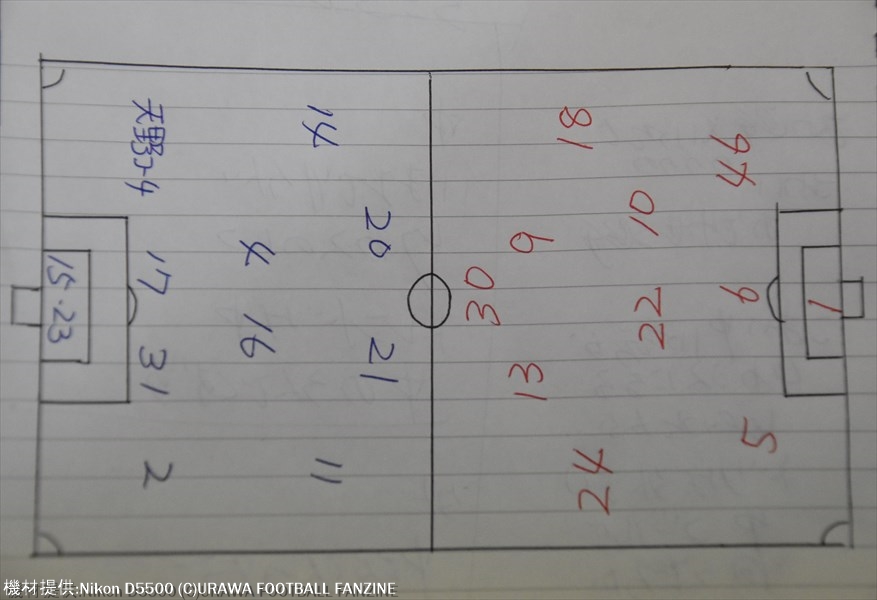 天野34
17
31
2
15・23
4
16
14
20
21
11
18
9
30
13
24
10
22
46
6
5
1
機材提供:Nikon D5500 (C)URAWA FOOTBALL FANZINE